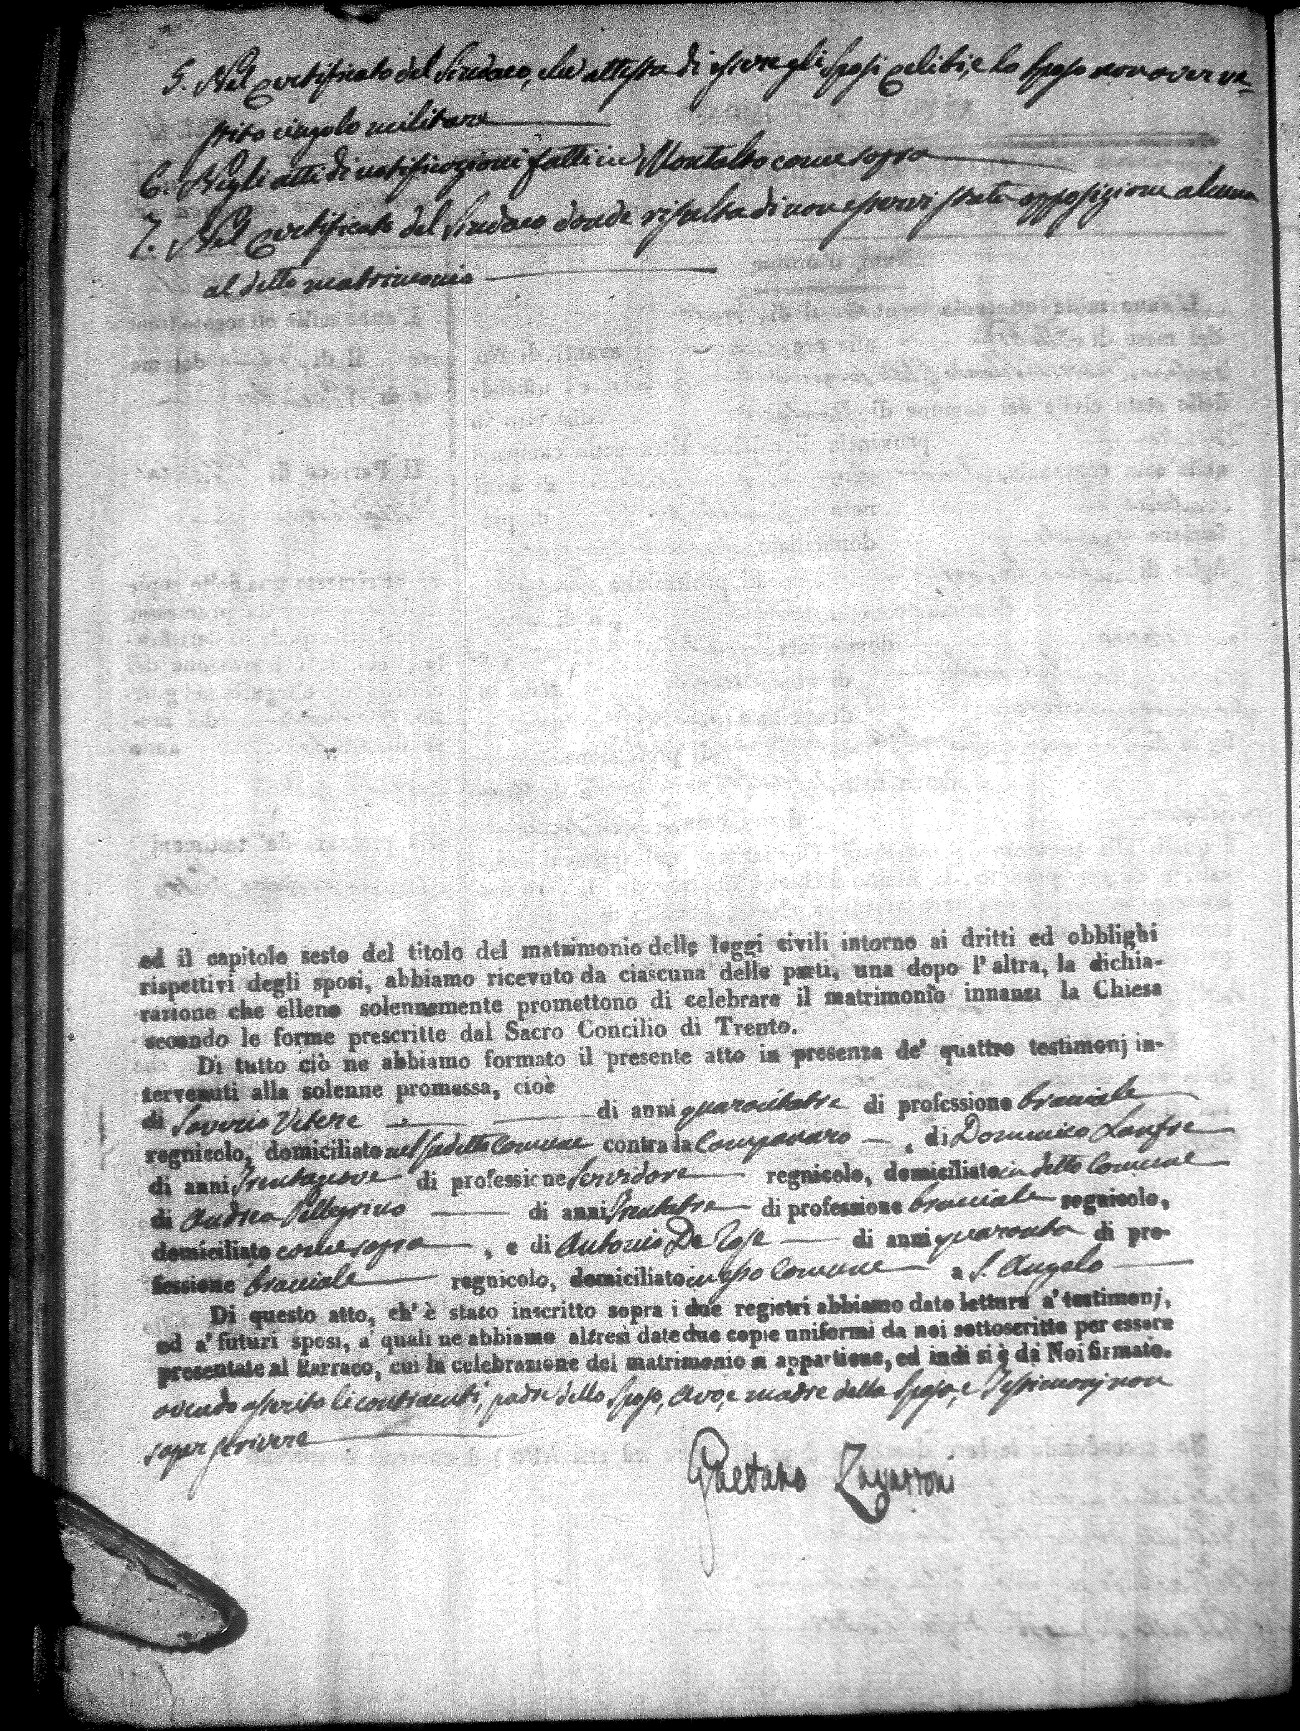 5. Nel Certificato del Sindaco, che attesta di essere gli Sposi celibi, e lo Sposo non aver ve-
stito cingolo militare
6. Negli atti di notificazioni fatti in Montalto come sopra
7. Nel Certificato del Sindaco donde risulta di non esservi stata opposizione alcuna
al detto matrimonio
ed il capitolo sesto del titolo del matrimonio delle leggi civili intorno ai dritti ed obblighi
rispettivi degli sposi, abbiamo ricevuto da ciascuna delle parti, una dopo l'altra, la dichia-
razione che elleno solennemente promettono di celebrare il matrimonio innanzi la Chiesa
secondo le forme prescritte dal Sacro Concilio di Trento.
Di tutto ciò ne abbiamo formato il presente atto in presenza de' quattro testimonj in-
tervenuti alla solenne promessa, cioè
di Saverio Vitere di anni quarantatre di professione bracciale
regnicolo, domiciliato nel sudetto Comune contrada Campanaro, di Domenico Lanfre
di anni trentanove di professione Servidore regnicolo, domiciliato in detto Comune
di Andrea Pellegrino di anni trentatre di professione bracciale regnicolo,
domiciliato come sopra, e di Antonio De Rose di anni quaranta di pro-
fessione bracciale regnicolo, domiciliato in esso Comune a S. Angelo
Di questo atto, ch' è stato inscritto sopra i due registri abbiamo dato lettura a' testimonj,
ed a' futuri sposi, a' quali ne abbiamo altresì date due copie uniformi da noi sottoscritte per essere
presentate al Parroco, cui la celebrazione del matrimonio si appartiene, ed indi si è da Noi firmato.
avendo asserito li contraenti, padre dello Sposo, avo, e madre della Sposa, e Testimonj non
saper scrivere
Gaetano